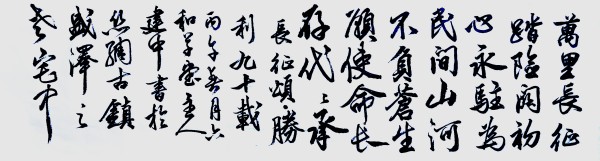 萬里長征
踏險関初
心永駐為
民間山河
不負蒼生
願使命长
存代〻承
長征頌勝
利九十載
丙午月六
和堂主人
建中書於
丝綢古鎮
盛澤之
老宅中